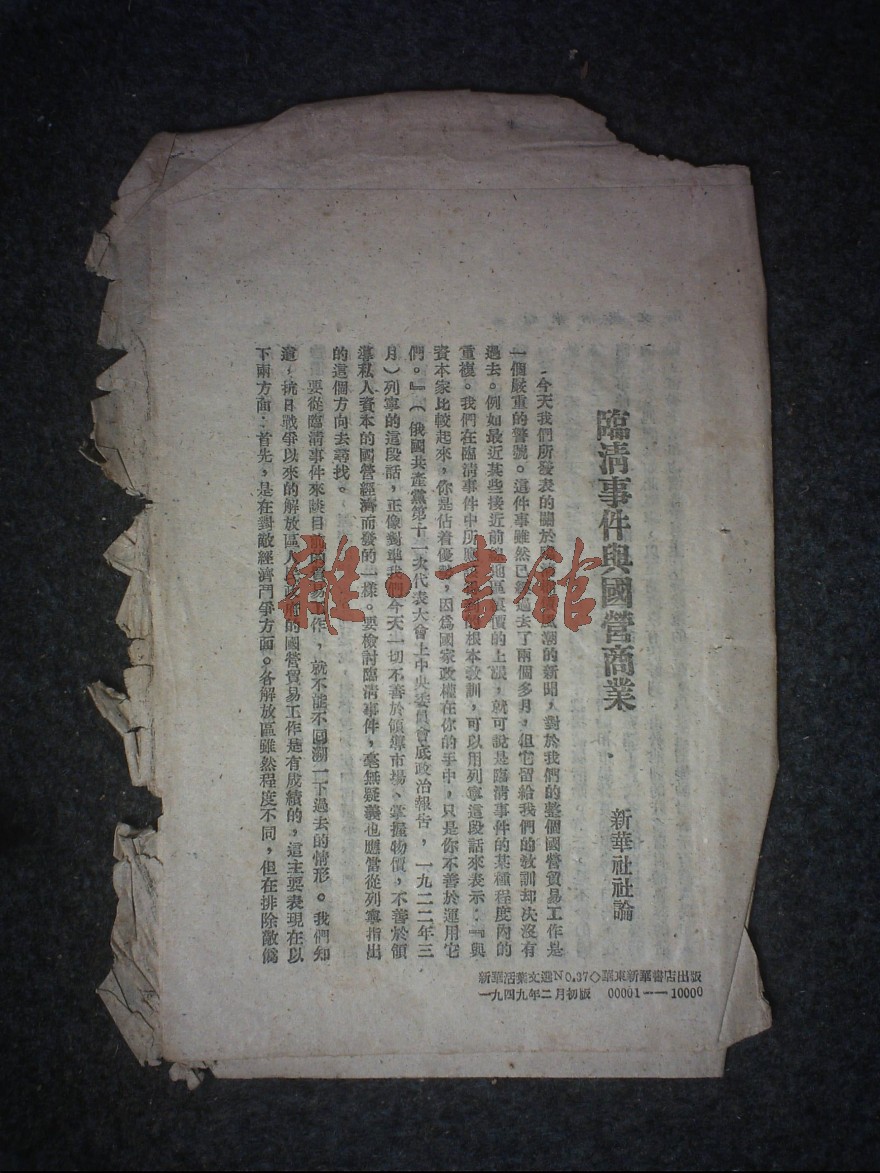 臨清事件與國營商業
新華社社論
今天我們所發表的關於 潮的新聞，對於我們的整個國營貿易工作是
一個嚴重的警號。這件事雖然已經過去了兩個多月，但它留給我們的敎訓却決沒有
過去。例如最近某些接近前 地區 價的上漲，就可說是臨清事件的某種程度內的
重複。我們在臨清事件中所 根本敎訓，可以用列寧這段話來表示：『與
資本家比較起來，你是佔着優勢，因爲國家政權在你的手中，只是你不善於運用它
們。』（俄國共產黨第十一次代表大會上中央委員會底政治報告，一九二二年三
月）列寧的這段話，正像對準我們今天一切不善於領導市場、掌握物價，不善於領
導私人資本的國營經濟而發的一樣。要檢討臨清事件，毫無疑義也應當從列寧指出
的這個方向去尋找。
要從臨清事件來談目前的貿易工作，就不能不回溯一下過去的情形。我們知
道，抗日戰爭以來的解放區人民政府的國營貿易工作是有成績的，這主要表現在以
下兩方面：首先，是在對敵經濟鬥爭方面。各解放區雖然程度不同，但在排除敵僞
新華活葉文選No.37◇華東新華書店出版
一九四九年二月初版 00001——10000
雜·書館